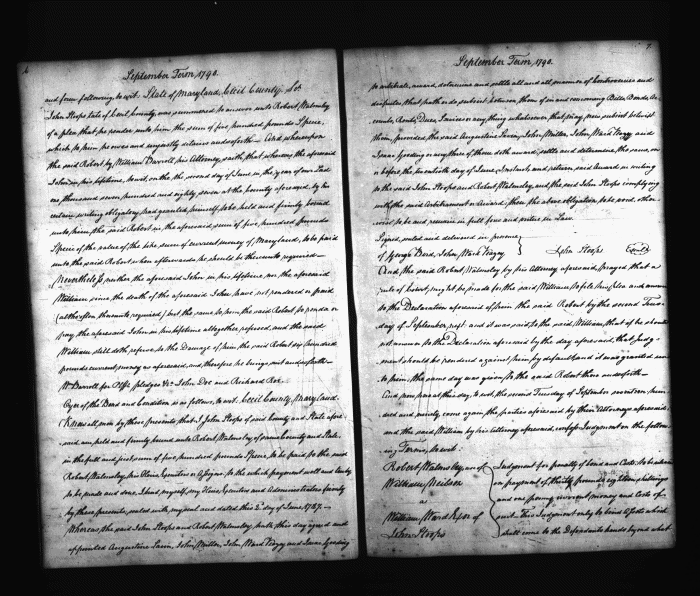 6
September Term, 1790.
and form following to wit. State of Maryland, Cecil County, Sct.
John Stoops late of Cecil County, was summoned to answer unto Robert Walmsley
of a plea that he render unto him the sum of five hundred pounds Specie,
which to him he owes and unjustly detains and so forth — And whereupon
the said Robert by William Barroll, his Attorney, saith, that whereas the aforesaid
John in his lifetime, to wit, on the second day of June in the year of our Lord
one thousand seven hundred and eighty seven at the County aforesaid, by his
certain writing obligatory had granted himself to be held and firmly bound
unto him the said Robert in the aforesaid sum of five hundred pounds
Specie of the value of the like sum of current money of Maryland, to be paid
unto the said Robert when afterwards he should be thereunto required —
Nevertheless, neither the aforesaid John in his lifetime nor the aforesaid
William since the death of the aforesaid John have not rendered or paid
(altho often thereunto required) but the same to him the said Robert to render or
pay the aforesaid John in his lifetime altogether refused, and the said
William still doth refuse, to the Damage of him the said Robert six hundred
pounds current money as aforesaid, and therefore he brings suit and so forth —
Wm. Barroll for Plff. pledges &c. John Doe and Richard Roe.
Oyer of the Bond and Condition is as follows, to wit. Cecil County, Maryland.
Know all men by these presents that I John Stoops of said County and State afore
said am held and firmly bound unto Robert Walmsley of same County and State,
in the full and just sum of five hundred pounds Specie, to be paid to the said
Robert Walmsley, his Heirs, Executors or Assigns, to the which payment well and truly
to be made and done, I bind myself, my Heirs, Executors and Administrators firmly
by these presents, sealed with my seal and dated this 2d day of June 1787. —
Whereas the said John Stoops and Robert Walmsley hath this day agreed and
appointed Augustine John Miller, John Ward Veazey and Isaac
7.
September Term, 1790.
to arbitrate, award, determine and settle all and all manner of Controversies and
disputes that hath or do subsist between them of in and concerning Bills, Bonds, Ac
counts, Book Debts, or any thing whatsoever that may now subsist betwixt
them, provided the said Augustine John Miller, John Ward Veazey and
Isaac or any three of them doth award, settle and determine the same, on
or before the twentieth day of June Instant, and return said Award in writing
to the said John Stoops and Robert Walmsley, and the said John Stoops complying
with the said Arbitrament or Award, then the above obligation to be void, other
wise to be and remain in full force and virtue in Law.
Signed, sealed and delivered in presence
of George Beard, John Ward Veazey } John Stoops (Seal)
And the said Robert Walmsley by his Attorney aforesaid, prayed that a
rule of Court might be made for the said William to file his plea and answer
to the Declaration aforesaid of him the said Robert by the second Tues-
day of September next: and it was said to the said William, that if he should
not answer to the Declaration aforesaid by the day aforesaid, that Judg-
ment should be rendered against him by default and it was granted
to him, the same day was given to the said Robert there and so forth —
And now here at this day, to wit, the second Tuesday of September seventeen hun
dred and ninety, come again the parties aforesaid by their Attorneys aforesaid:
and the said William by his Attorney aforesaid, confess Judgment in the follow-
ing Terms, to wit:
Robert Walmsley
William
William Ward Exor. of
John Stoops
Judgment for penalty of bond and Costs. To be released
on payment of thirty pounds eighteen shillings
and one penny current money and Costs of
suit. This Judgment only to bind Assets which
shall come to the Defendants hands beyond what